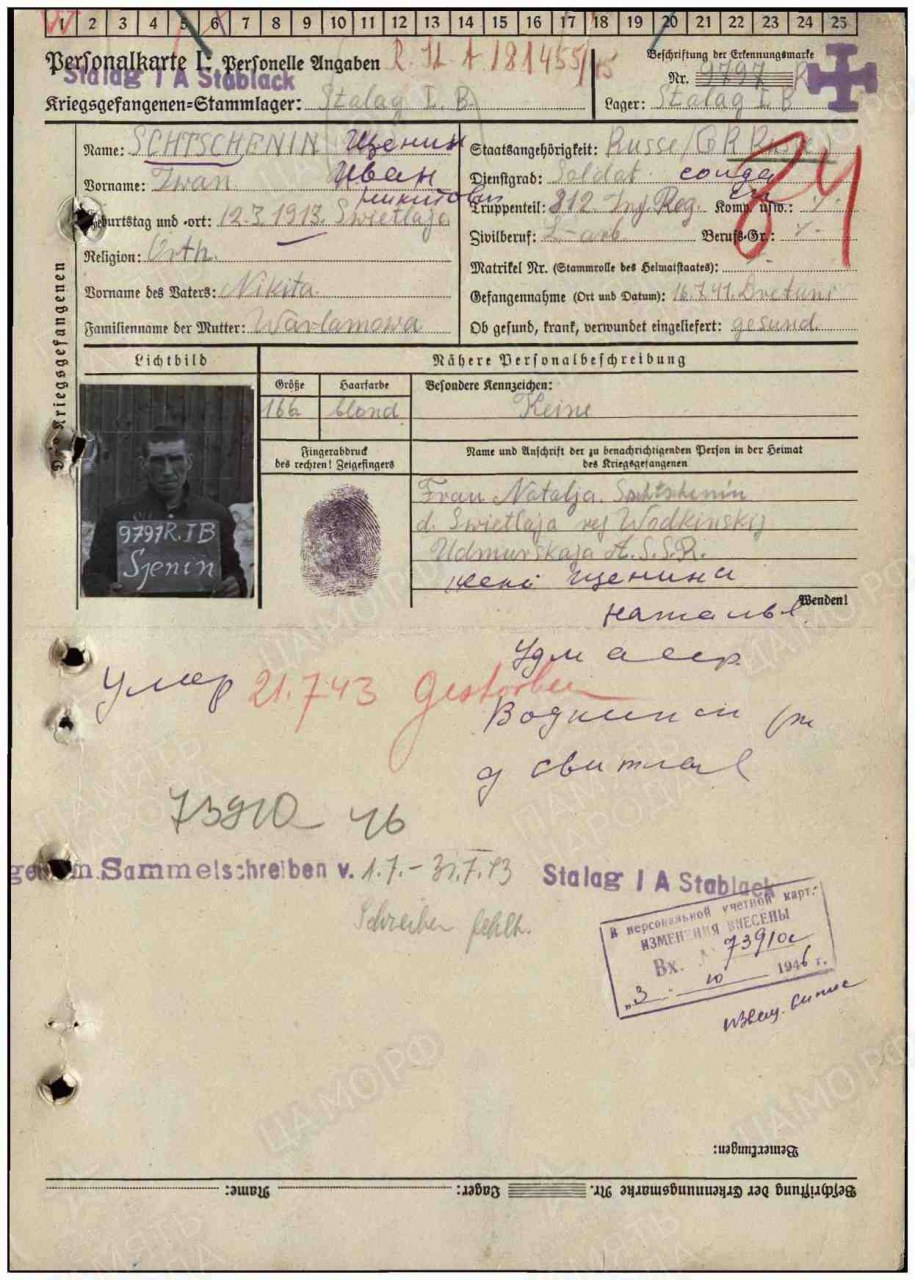 1 2 3 4 5 6 7 8 9 10 11 12 13 14 15 16 17 18 19 20 21 22 23 24 25
Personalkarte I: Personelle Angaben
Stalag I A Stablack
Kriegsgefangenen-Stammlager: Stalag I. B.
Beschriftung der Erkennungsmarke
Nr. 9797
Lager: Stalag I B
Des Kriegsgefangenen
Name: SCHTSCHENIN Щенин
Vorname: Iwan Иван
Никитович
Geburtstag und -ort: 12.3.1913. Swietlaja
Religion: Orth.
Vorname des Vaters: Nikita.
Familienname der Mutter: Warlamowa
Staatsangehörigkeit: Russe/GR Russe
Dienstgrad: Soldat. солдат
Truppenteil: 812. Inf. Reg. Komp. usw.:
Zivilberuf: L-arb. Berufs-Gr.:
Matrikel Nr. (Stammrolle des Heimatstaates):
Gefangennahme (Ort und Datum): 16.7.41. Dretuni
Ob gesund, krank, verwundet eingeliefert: gesund.
Lichtbild
Nähere Personalbeschreibung
Größe Haarfarbe Besondere Kennzeichen:
166 blond Keine
Fingerabdruck
des rechten! Zeigefingers
Name und Anschrift der zu benachrichtigenden Person in der Heimat
des Kriegsgefangenen
9797 R. IB
Sjenin
Frau Natalja Schtschenin
d. Swietlaja rej Wodkinskij
Udmurskaja A.S.S.R.
Щенина
Wenden!
Наталья
Удм асср
умер 21.7.43 Gestorben
73910 46
gem. Sammelschreiben v. 1.7.-31.7.43 Stalag I A Stablack
Schreiben fehlt.
В персональной учетной карт.
ИЗМЕНЕНИЯ ВНЕСЕНЫ
Вх. № 73910с
„3 10 1946 г.
Bemerkungen:
Beschriftung der Erkennungsmarke Nr. Lager: Name:
ПАМЯТЬ НАРОДА
ЦАМО.РФ